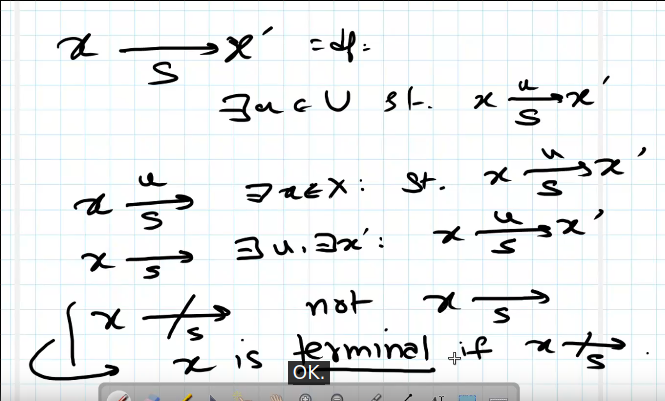 x →_S x' =df=
∃u ∈ U st. x →^u_S x'
x →^u_S ∃x∈X: St. x →^u_S x'
x →_S ∃u,∃x': x →^u_S x'
x ↛_S not x →_S
x is terminal if x ↛_S.
OK.